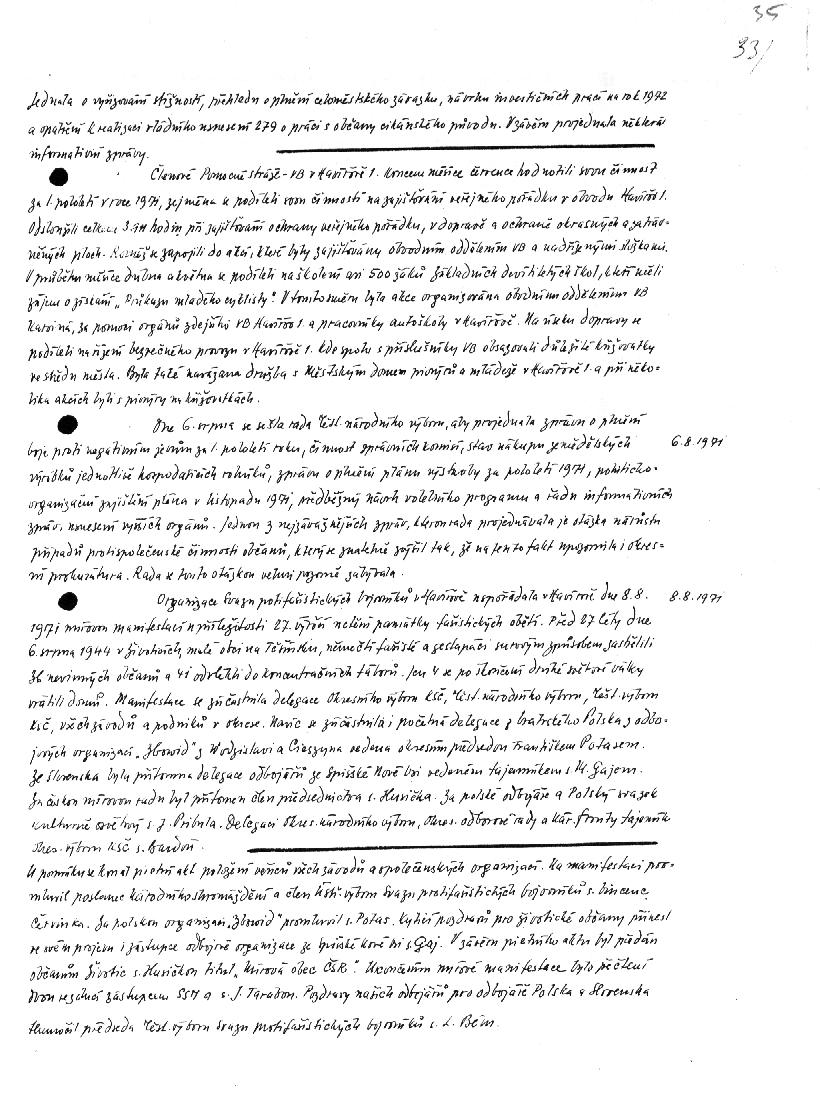 35
33/
Jednala o vyřizování stížností, přehledu o plnění celoměstského závazku, návrhu investičních prací na rok 1972
a opatření k realizaci vládního usnesení 279 o práci s občany cikánského původu. V závěru projednala některé
informativní zprávy.
Členové Pomocné stráže - VB v Havířově 1. koncem měsíce července hodnotili svou činnost
za I. pololetí v roce 1971, zejména se podíleli svou činností na zajišťování veřejného pořádku v obvodu Havířov 1.
Odsloužili celkem hodin při zajišťování ochrany veřejného pořádku, v dopravě a ochraně okrasných a zatrav-
něných ploch. Rovněž se zapojili do akcí, které byly zajišťovány obvodním oddělením VB a nadřízenými složkami.
V průběhu měsíce dubna a května se podíleli na školení asi 500 žáků základních devítiletých škol, kteří měli
zájem o získání „Průkazu mladého cyklisty". V tomto směru byla akce organizována obvodním oddělením VB
Karviná, za pomoci orgánů zdejšího VB Havířov 1. a pracovníky autoškoly v Havířově. Na úseku dopravy se
podíleli na řízení bezpečného provozu v Havířově 1. kde spolu s příslušníky VB obsazovali důležité křižovatky
ve středu města. Byla také navázána družba s Městským domem pionýrů a mládeže v Havířově 1. a při něko-
lika akcích byli s pionýry na křižovatkách.
Dne 6. srpna se sešla rada Měst. národního výboru, aby projednala zprávu o plnění
boje proti negativním jevům za I. pololetí roku, činnost správních komisí, stav nákupu zemědělských 6.8.1971
výrobků jednotlivě hospodařících rolníků, zprávu o plnění plánu výstavby za pololetí 1971, politicko-
organizační zajištění pléna v listopadu 1971, předběžný návrh volebního programu a řadu informativních
zpráv, usnesení vyšších orgánů. Jednou z nejzávažnějších zpráv, kterou rada projednávala je otázka nárůstu
případů protispolečenské činnosti občanů, který se značně zvýšil tak, že na tento fakt upozornila i okres-
ní prokuratura. Rada se touto otázkou velmi pozorně zabývala.
Organizace Svazu protifašistických bojovníků v Havířově uspořádala v Havířově dne 8.8. 8.8.1971
1971 mírovou manifestaci u příležitosti 27. výročí uctění památky fašistických obětí. Před 27 léty dne
6. srpna 1944 v Životicích malé obci na Těšínsku, němečtí fašisté a gestapáci surovým způsobem zastřelili
36 nevinných občanů a 41 odvlekli do koncentračních táborů. Jen 4 se po skončení druhé světové války
vrátili domů. Manifestace se zúčastnila delegace Okresního výboru KSČ, Měst. národního výboru, Měst. výboru
KSČ, všech závodů a podniků v okrese. Navíc se zúčastnila i početná delegace z bratrského Polska z odbo-
jových organizací „Zbowid" z Wodzislavi a Cieszyna vedena okresním předsedou Františkem Potasem.
Ze Slovenska byla přítomna delegace odbojářů ze Spišské Nové Vsi vedeném tajemníkem s. M. Gajem.
Za českou mírovou radu byl přítomen člen předsednictva s. Husička. Za polské odbojáře a Polský svazek
kulturně osvětový s. J. Pribula. Delegaci Okres. národního výboru, Okres. odborové rady a Nár. fronty tajemník
Okres. výboru KSČ s. Bardoň.
U pomníku se konal pietní akt položení věnců všech závodů a společenských organizací. Na manifestaci pro-
mluvil poslanec Národního shromáždění a člen Ústř. výboru Svazu protifašistických bojovníků s. Vincenc
Červinka. Za polskou organizaci „Zbowid" promluvil s. Potas. Kytici pozdravů pro životické občany přinesl
ve svém projevu i zástupce odbojové organizace ze Spišské Nové Vsi s. Gaj. V závěru pietního aktu byl předán
občanům Životic s. Husičkou titul „Mírová obec ČSR". Ukončením mírové manifestace bylo přečtení
dvou rezolucí zástupcem SSM a s. J. Tarabou. Pozdravy našich odbojářů pro odbojáře Polska a Slovenska
tlumočil předseda Měst. výboru Svazu protifašistických bojovníků s. L. Bém.